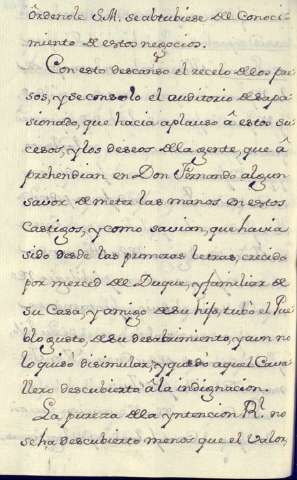 ôrdenole S.M. se abtubiese del Conoci
miento de estos negocios.
Con esto descansò el recelo de los pre
sos, y se consolo el auditorio desapa
sionado, que hacia aplauso â estos su
cesos, y los deseos de la gente, que â
prehendian en Don Fernando algun
savor de meter las manos en estos
Castigos, y como savian, que havia
sido desde las primeras letras, crecido
por merced del Duque, y familiar de
su Casa, y amigo de su hijo, tubò el Pue
blo gusto, de su desabrimiento, y aun no
lo quisò disimular, y quedò aquel Cava
llero descubierto â la indignacion.
La pureza de la yntencion Rl. no
se ha descubierto menos que el Valor,